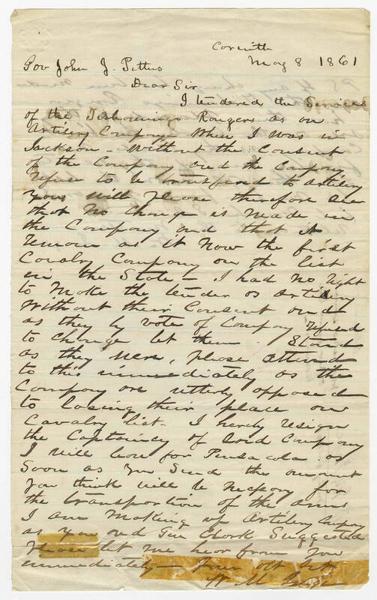 Corinth
Gov John J. Pettus May 8 1861
Dear Sir
I tendered the Services
of the Tishomingo Rangers as an
Artillery Company When I was in
Jackson - Without the Consent
of the Company and the Company
refuse to be transfered to artillery
You will please therefore see
that No Change is Made in
the Company and that it
remain as it Now the first
Cavalry Company on the list
in the State - I had No right
to Make the tender as Artillery
Without their Consent and
as they by vote of Company refused
to Change let them Stand
as they were, please attend
to this immediately as the
Company are utterly opposed
to losing their place on
Cavalry list. I hereby resign
the Captaincy of said Company
I will leave for Pensacola as
Soon as you Send the amount
you think will be necessary for
the transportation of the arms
I am Making up Artillery Company
as you and Gen Suggested
Please let me hear from You
immediately